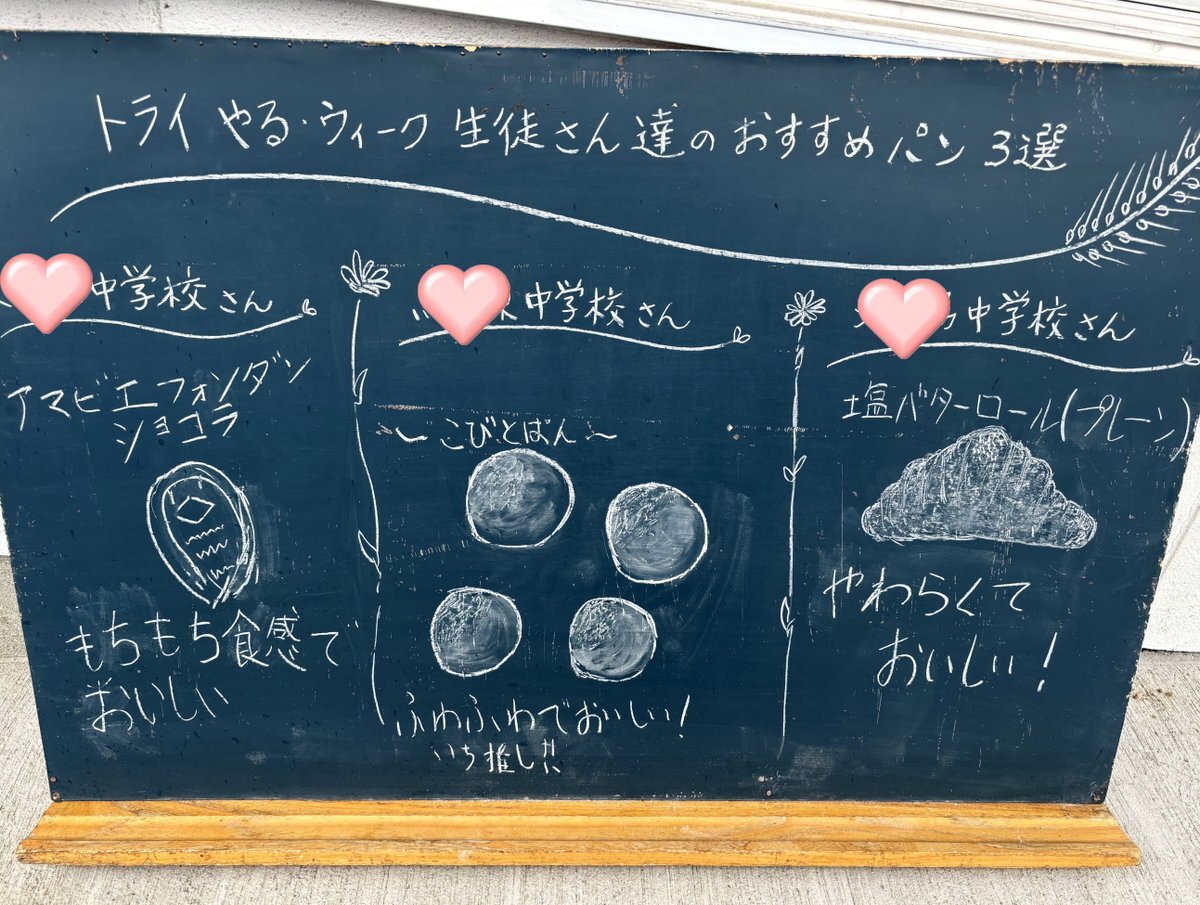 トライやる・ウィーク 生徒さん達のおすすめパン 3選
中学校さん
アマビエフォンダン
ショコラ
もちもち食感で
おいしい
中学校さん
～こびとぱん～
ふわふわでおいしい!
いち推し!!
中学校さん
塩バターロール(プレーン)
やわらくて
おいしい!